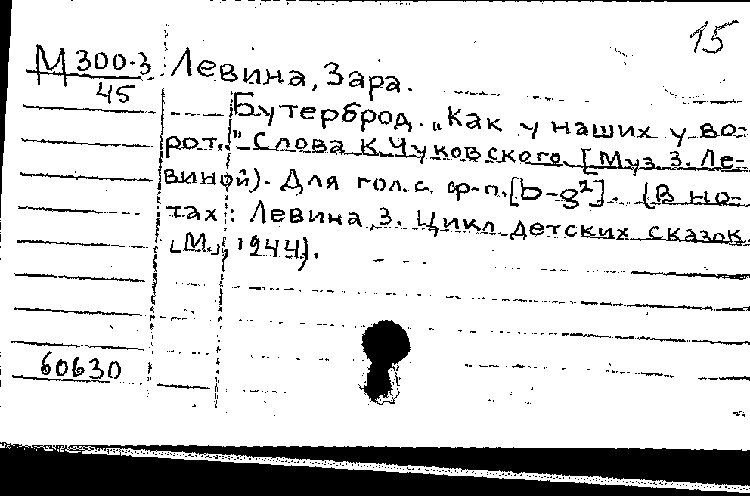 15
М 300-3
45
Левина, Зара.
Бутерброд. „Как у наших у во-
рот." Слова К. Чуковского. [Муз. З. Ле-
виной). Для гол. с ф-п. [b-g²]. (В но-
тах: Левина, З. Цикл детских сказок.
[М., 1944).
60630